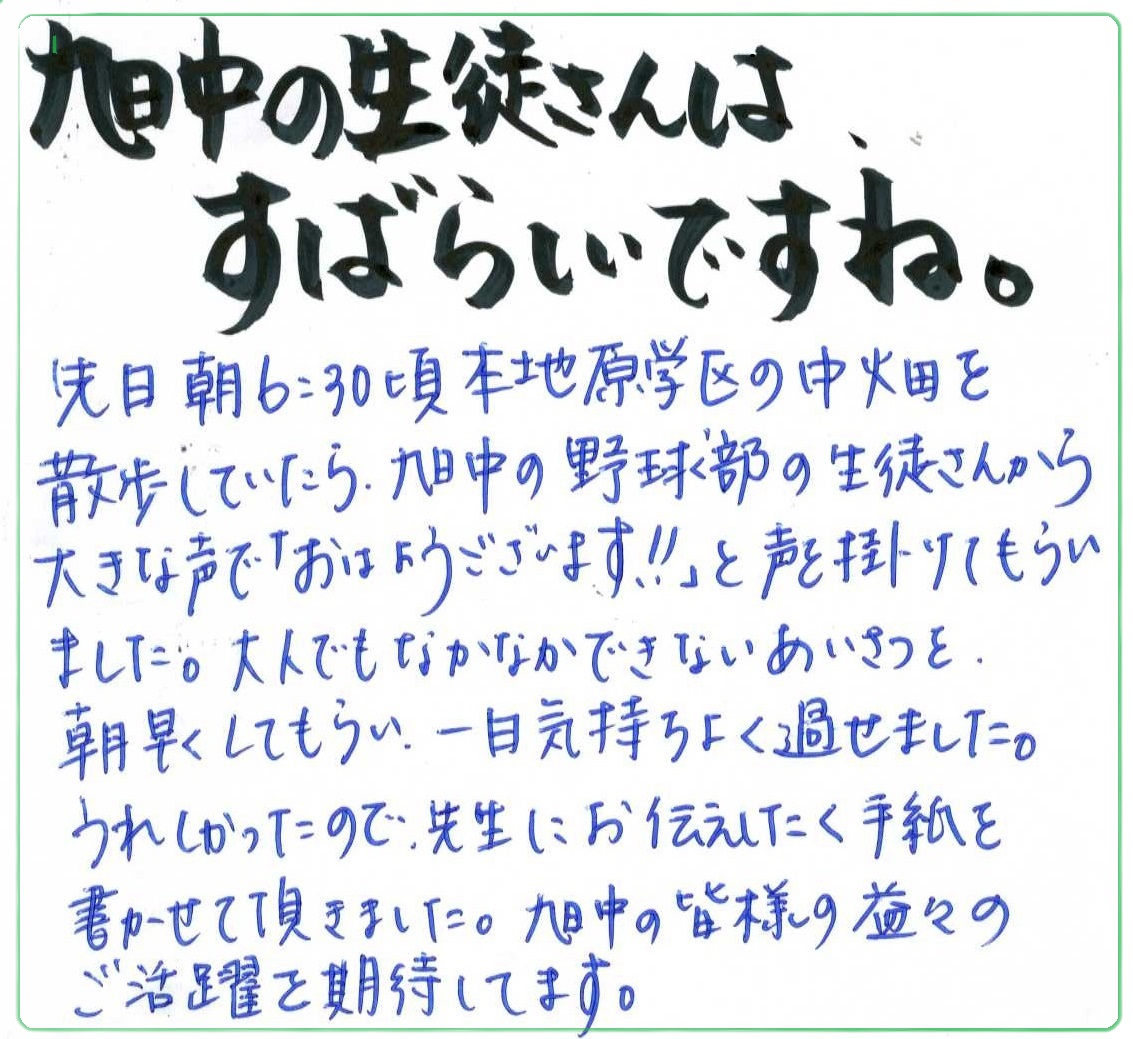 旭中の生徒さんは、
すばらしいですね。
先日朝6:30頃本地原学区の中畑を
散歩していたら、旭中の野球部の生徒さんから
大きな声で「おはようございます!!」と声を掛けてもらい
ました。大人でもなかなかできないあいさつを、
朝早くしてもらい、一日気持ちよく過せました。
うれしかったので、先生にお伝えしたく手紙を
書かせて頂きました。旭中の皆様の益々の
ご活躍を期待してます。